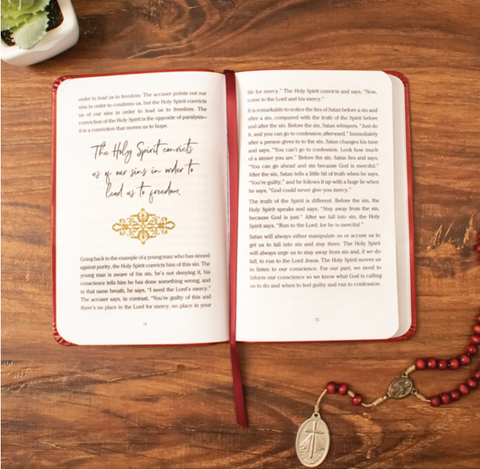 order to lead us to freedom. The accuser points out our
sins in order to condemn us, but the Holy Spirit convicts
us of our sins in order to lead us to freedom. The
conviction of the Holy Spirit is the opposite of paralysis–
it is a conviction that moves us to hope.
The Holy Spirit convicts
us of our sins in order to
lead us to freedom.
Going back to the example of a young man who has sinned
against purity, the Holy Spirit convicts him of this sin. The
young man is aware of his sin, he's not denying it, his
conscience tells him he has done something wrong, and
in that same breath, he says, "I need the Lord's mercy."
The accuser says, in contrast, "You're guilty of this and
there's no place in the Lord for mercy, no place in your
life for mercy." The Holy Spirit convicts and says, "Now,
come to the Lord and his mercy."
It is remarkable to notice the lies of Satan before a sin and
after a sin, compared with the truth of the Spirit before
and after the sin. Before the sin, Satan whispers, "Just do
it, and you can go to confession afterward." Immediately
after a person gives in to the sin, Satan changes his tune
and says, "You can't go to confession. Look how much
of a sinner you are." Before the sin, Satan lies and says,
"You can go ahead and sin because God is merciful."
After the sin, Satan tells a little bit of truth when he says,
"You're guilty," and he follows it up with a huge lie when
he says, "God could never give you mercy."
The truth of the Spirit is different. Before the sin, the
Holy Spirit speaks and says, "Stay away from the sin,
because God is just." After we fall into sin, the Holy
Spirit says, "Run to the Lord, for he is merciful."
Satan will always either manipulate us or accuse us to
get us to fall into sin and stay there. The Holy Spirit
will always urge us to stay away from sin and, if we do
fall, to run to the Lord Jesus. The Holy Spirit moves us
to listen to our conscience. For our part, we need to
inform our conscience so we know what God is calling
us to do and when to feel guilt and run to confession.